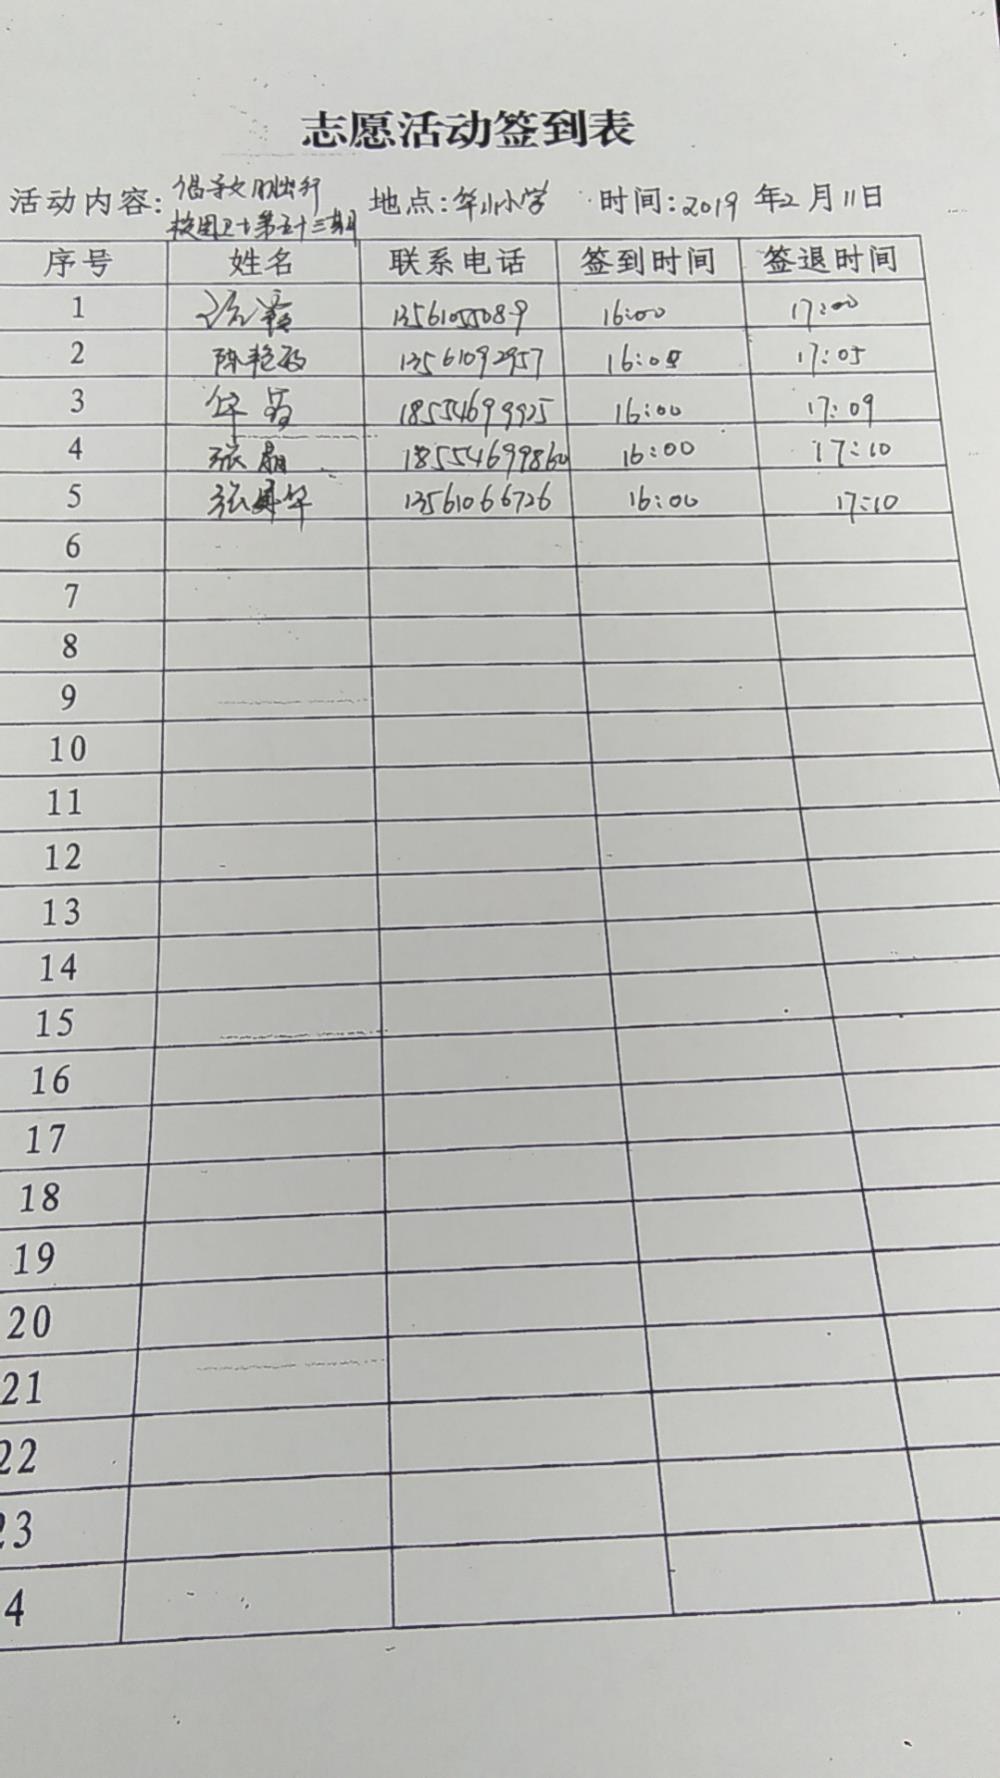 志愿活动签到表
活动内容: 倡导文明出行 校园卫士第五十三期 地点: 华山小学 时间: 2019 年 2 月 11 日
序号 姓名 联系电话 签到时间 签退时间
1 13561055089 16:00 17:00
2 陈艳 13561092957 16:05 17:05
3 18554699925 16:00 17:09
4 张 18554699860 16:00 17:10
5 张 华 13561066726 16:00 17:10
6
7
8
9
10
11
12
13
14
15
16
17
18
19
20
21
22
23
4